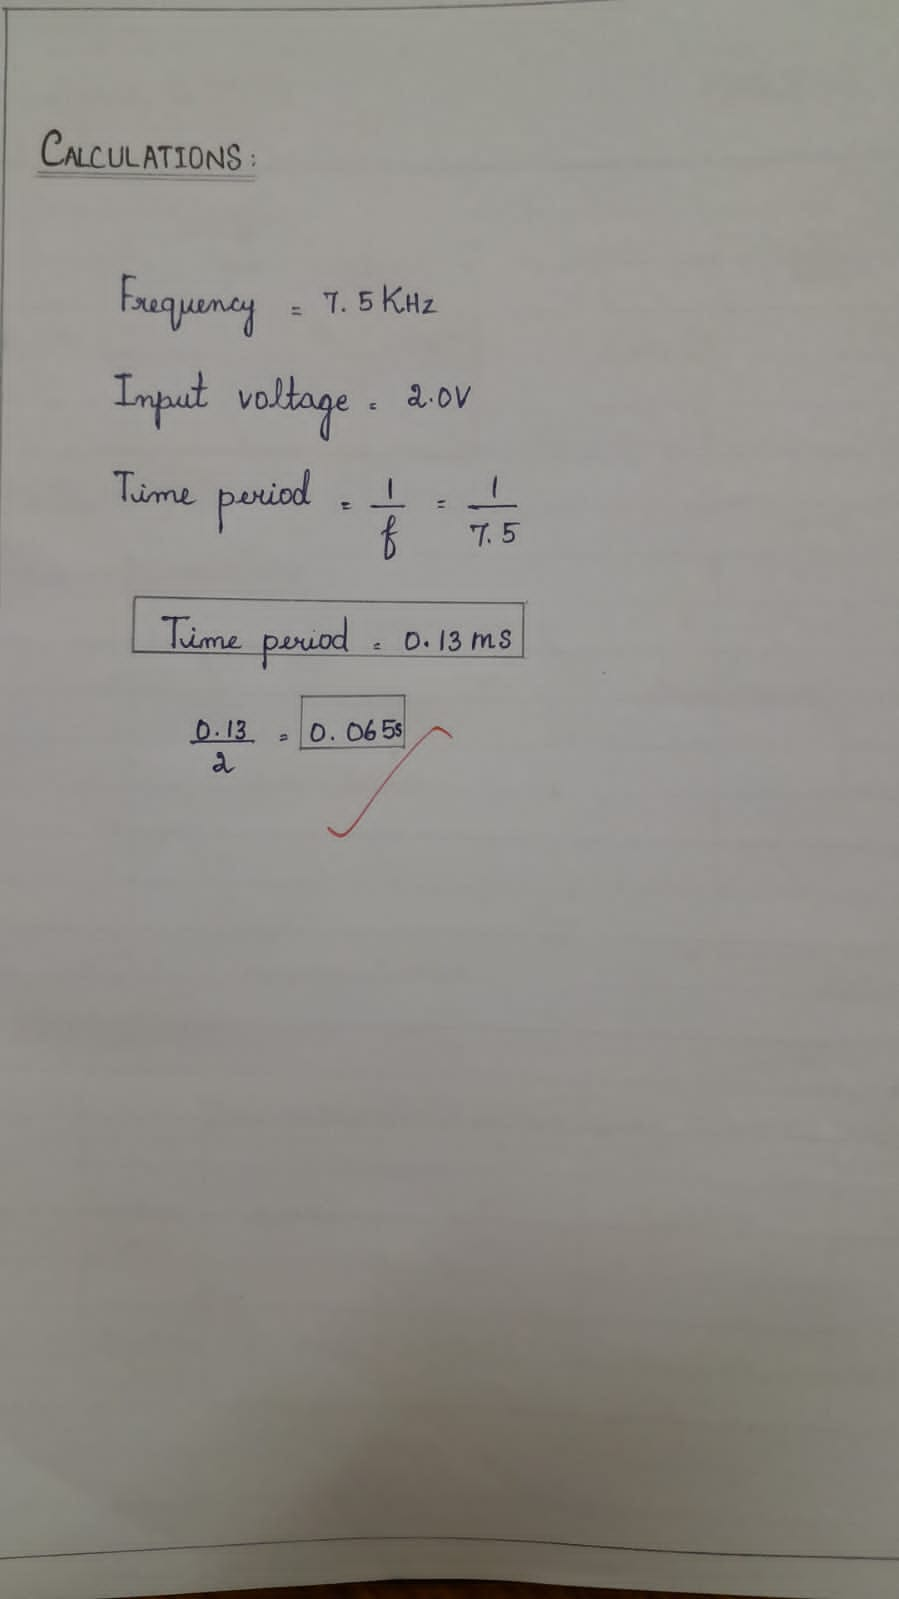 CALCULATIONS:
Frequency = 7.5 KHz
Input voltage = 2.0V
Time period = 1/f = 1/7.5
Time period = 0.13 ms
0.13/2 = 0.065s